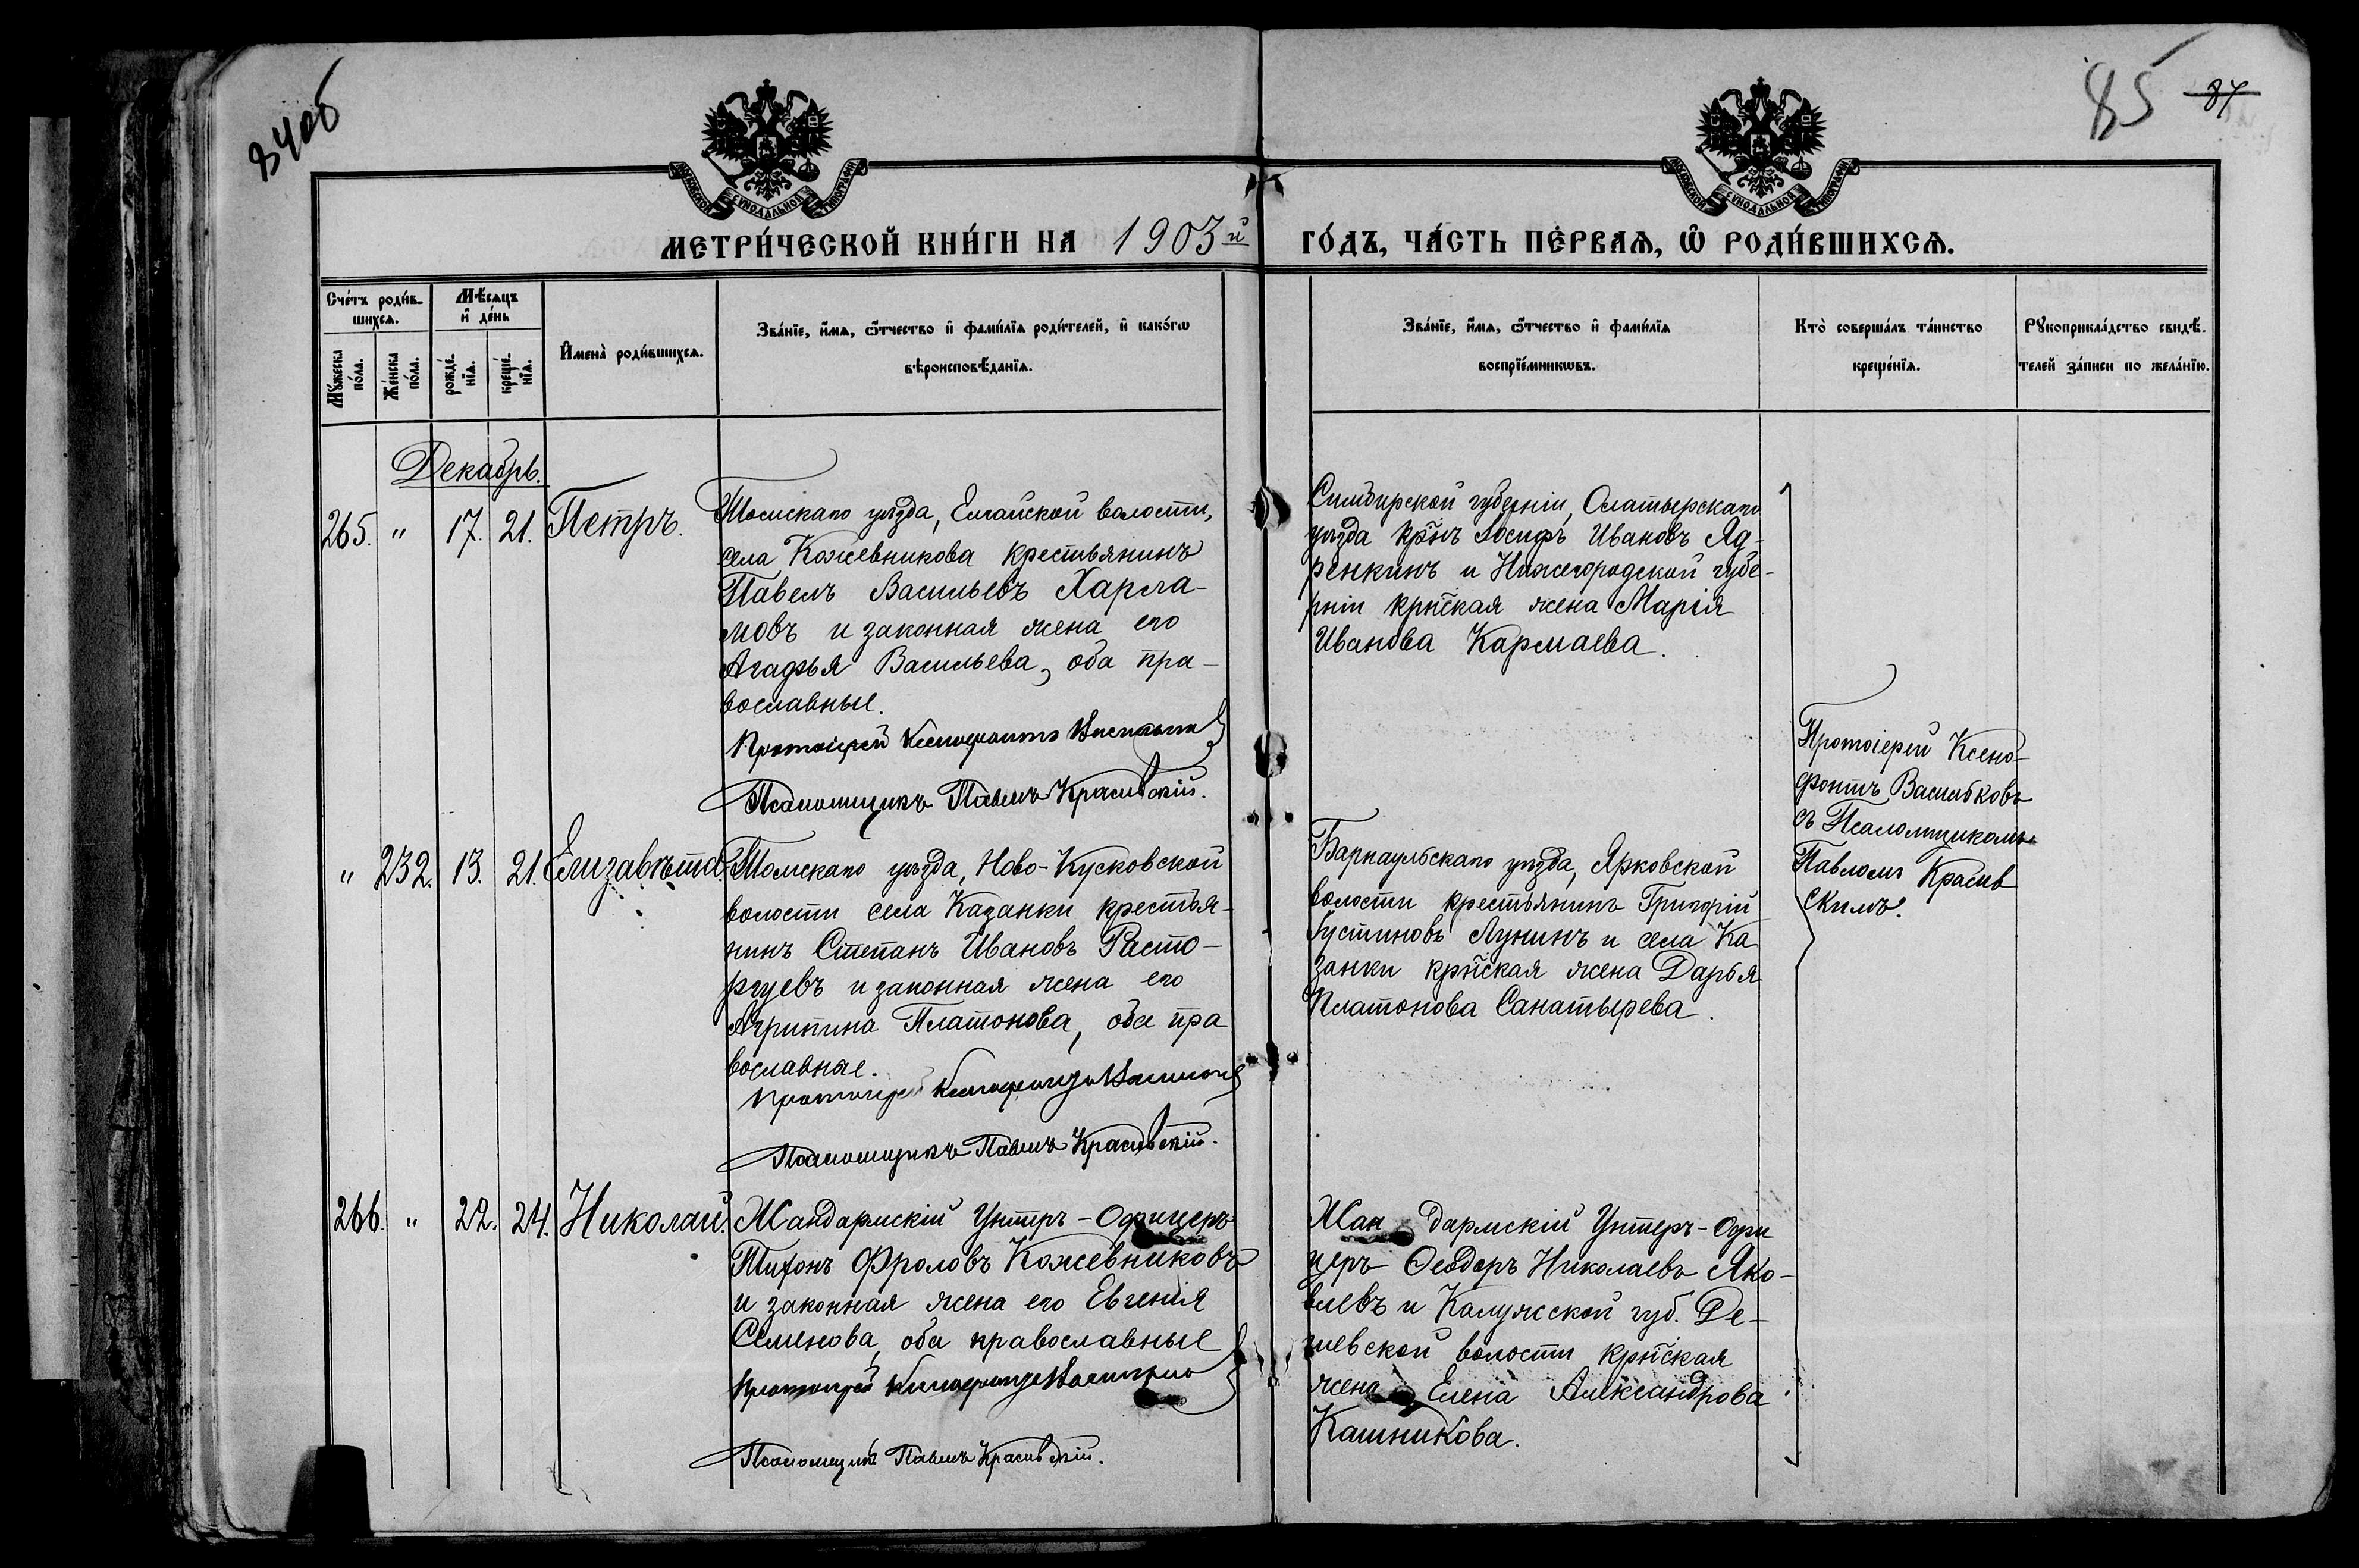 84об
85 84
МОСКОВСКОЙ СѴНОДАЛЬНОЙ ТИПОГРАФІИ
МОСКОВСКОЙ СѴНОДАЛЬНОЙ ТИПОГРАФІИ
МЕТРИ́ЧЕСКОЙ КНИ́ГИ НА 1903й ГО́ДЪ, ЧА́СТЬ ПЕ́РВАѦ, Ѽ РОДИ́ВШИХСѦ.
Сче́тъ роди́в-
шихсѧ.
Мꙋжеска
по́ла.
Же́нска
по́ла.
Мѣ́сѧцъ
и҆ де́нь
рожде́-
нїѧ.
креще́-
нїѧ.
И҆мена̀ роди́вшихсѧ.
Зва́нїе, и҆́мѧ, ѻ҆́тчество и҆ фами́лїѧ роди́телей, и҆ како́гѡ
вѣроисповѣ́данїѧ.
Зва́нїе, и҆́мѧ, ѻ҆́тчество и҆ фами́лїѧ
воспрїе́мникѡвъ.
Кто̀ соверша́лъ та́инство
креще́нїѧ.
Рꙋкоприкла́дство свидѣ́-
телей за́писи по жела́нїю.
Декабрь.
265. " 17. 21. Петръ.
Томскаго уѣзда, Елгайской волости,
села Кожевникова крестьянинъ
Павелъ Васильевъ Харла-
мовъ и законная жена его
Агафья Васильева, оба пра-
вославные.
Протоіерей Ксенофонтъ Васильковъ
Псаломщикъ Павелъ Красивскій.
Симбирской губерніи, Олатырскаго
уѣзда кр̃нъ Іосифъ Ивановъ Яд-
ренкинъ и Нижегородской губе-
рніи кр̃нская жена Марія
Иванова Кармаева.
Протоіерей Ксено-
фонтъ Васильковъ
съ Псаломщикомъ
Павломъ Красив
скимъ.
" 232. 13. 21. Елизавѣта.
Томскаго уѣзда, Ново-Кусковской
волости села Казанки крестья-
нинъ Степанъ Ивановъ Расто-
ргуевъ и законная жена его
Агрипина Платонова, оба пра
вославные.
Протоіерей Ксенофонтъ Васильковъ
Псаломщикъ Павелъ Красивскій.
Барнаульскаго уѣзда, Ярковской
волости крестьянинъ Григорій
Густиновъ Лунинъ и села Ка
занки кр̃нская жена Дарья
Платонова Санатырева.
266. " 22. 24. Николай.
Жандармскій Унтеръ-Офицеръ
Тихонъ Фроловъ Кожевниковъ
и законная жена его Евгенія
Семенова, оба православные
Протоіерей Ксенофонтъ Васильковъ
Псаломщикъ Павелъ Красивскій.
Жан дармскій Унтеръ-Офи
церъ Ѳеодоръ Николаевъ Яко-
влевъ и Калужской губ. Де-
гиевской волости кр̃нская
жена Елена Александрова
Кашникова.